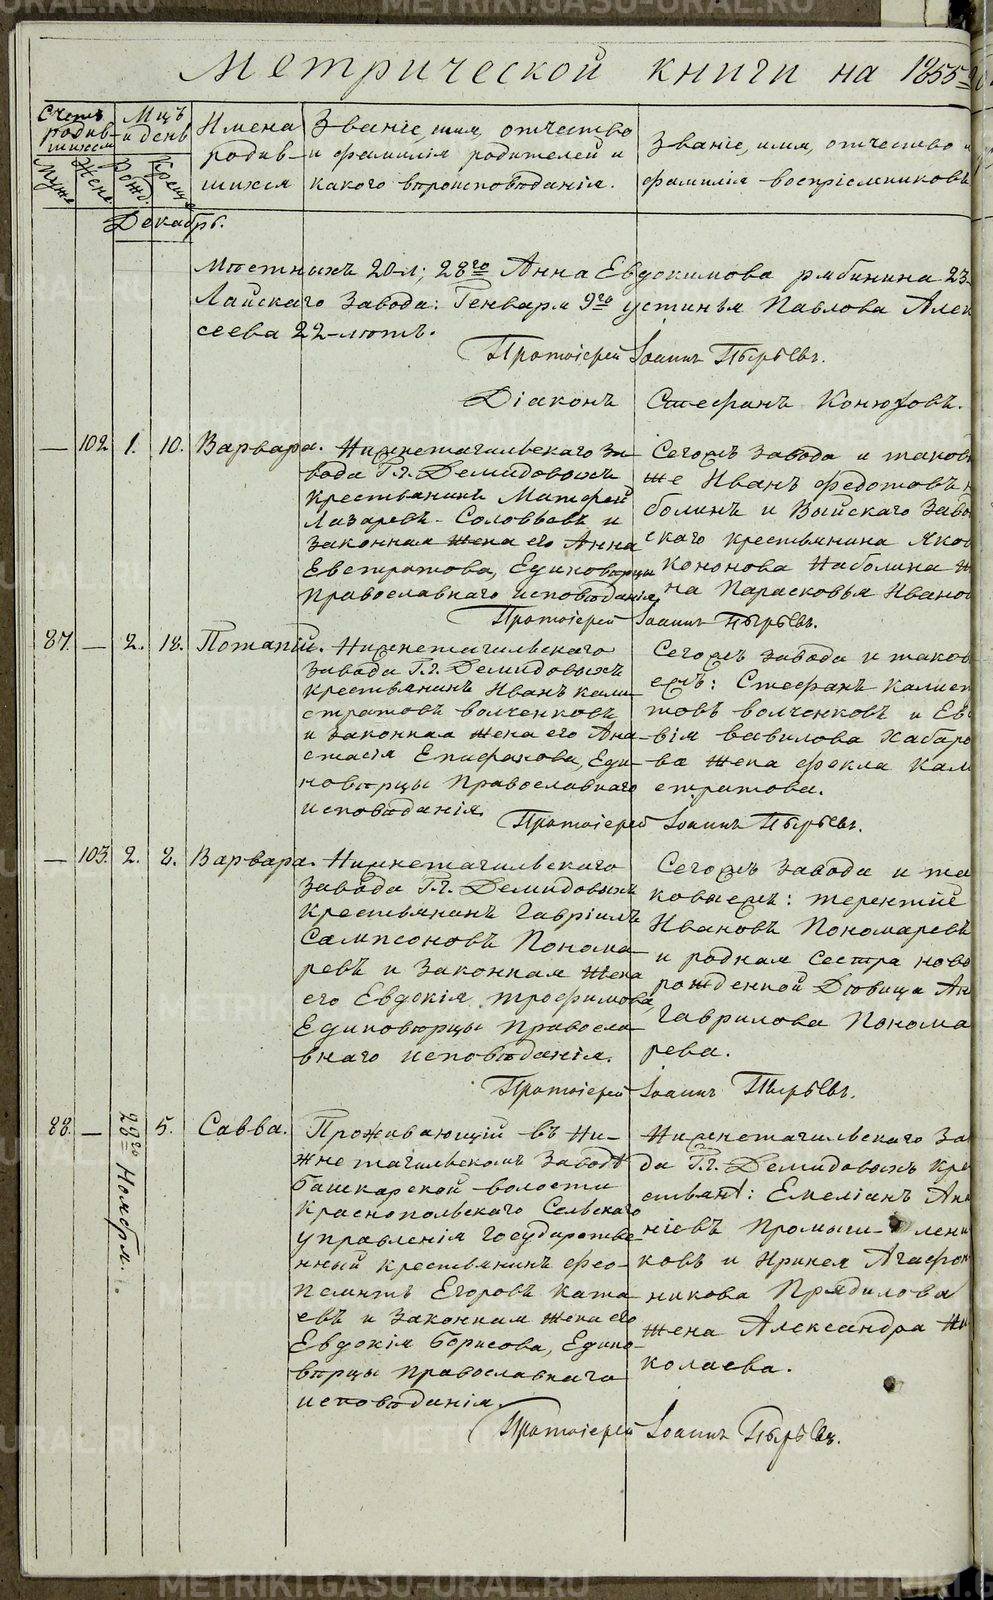 Метрической книги на 1855
Счетъ родив-шихся
Муже
Жене
Мцъ и день
Рожд.
Крещ.
Имена родив-шихся
Званіе, имя, отчество
и фамилія родителей и
какого вѣроисповѣданія.
Званіе, имя, отчество и
фамилія воспріемниковъ
Декабрь.
Мѣстныхъ 20-л; 28го Анна Евдокимова Рябинина 23-
Лайскаго Завода: Генваря 9го Устинья Павлова Алек
сеева 22-лѣтъ.
Протоіерей Іоаннъ Пырьевъ.
Діаконъ Стефанъ Конюховъ.
— 102 1. 10. Варвара.
Нижнетагильскаго за-
вода Г.г. Демидовыхъ
крестьянинъ Матфей
Лазаревъ Соловьевъ и
законная жена его Анна
Евстратова, Единоверцы
Православнаго исповѣданія
Сегожъ завода и таков
же Иванъ Федотовъ
болинъ и Выйскаго Заво
скаго крестьянина Яков
Кононова Наболина
на Парасковья Иванов
Протоіерей Іоаннъ Пырьевъ.
87. — 2. 18. Потапій.
Нижнетагильскаго
завода Г.г. Демидовыхъ
крестьянинъ Иванъ Кали-
стратовъ Волченковъ
и законная жена его Ана-
стасія Епифанова, Еди-
новѣрцы Православнаго
исповѣданія.
Сегожъ завода и таков
ежъ: Стефанъ Калист
товъ Волченковъ и Ев
вія Вавилова Хабаро
ва жена Фекла Кали
стратова.
Протоіерей Іоаннъ Пырьевъ.
— 103. 2. 2. Варвара.
Нижнетагильскаго
завода Г.г. Демидовыхъ
крестьянинъ Гавріилъ
Сампсоновъ Понома-
ревъ и законная жена
его Евдокія Трофимова,
Единовѣрцы Правосла-
внаго исповѣданія.
Сегожъ завода и та
ковыежъ: Терентій
Ивановъ Пономаревъ
и родная сестра ново
рожденной Дѣвица Ан
Гаврилова Понома
рева.
Протоіерей Іоаннъ Пырьевъ.
88. — 28го Ноября. 5. Савва.
Проживающій въ Ни-
жнетагильскомъ заводѣ
Башкарской волости
Краснопольскаго Сельскаго
управленія Государстве-
нный крестьянинъ Фео-
пемптъ Егоровъ Ката-
евъ и законная жена его
Евдокія Борисова, Едино-
вѣрцы Православнаго
исповѣданія.
Нижнетагильскаго За
да Г.г. Демидовыхъ кре
стьяне: Емеліанъ Ана
ніевъ Промыш-лени
ковъ и Ирине́я Агафон
никова Прядилова
жена Александра Ни
колаева.
Протоіерей Іоаннъ Пырьевъ.
METRIKI.GASU-URAL.RU